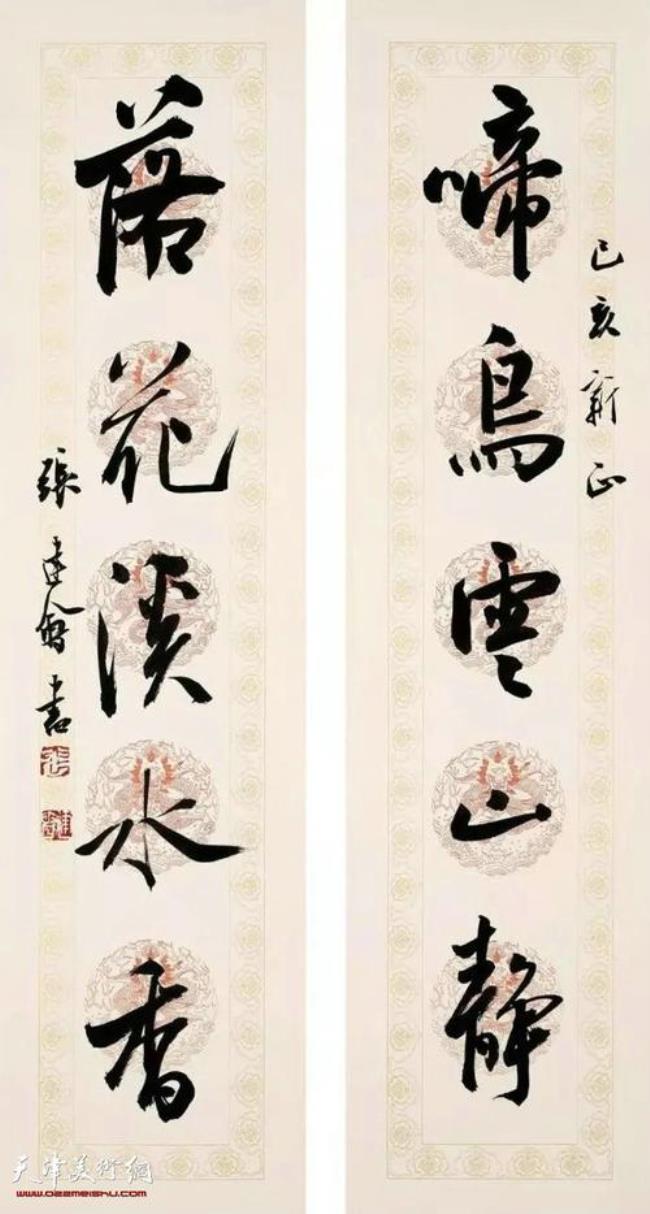 己亥新正
啼鳥雲山靜
落花溪水香
張建會書
天津美術網
www.022meishu.com